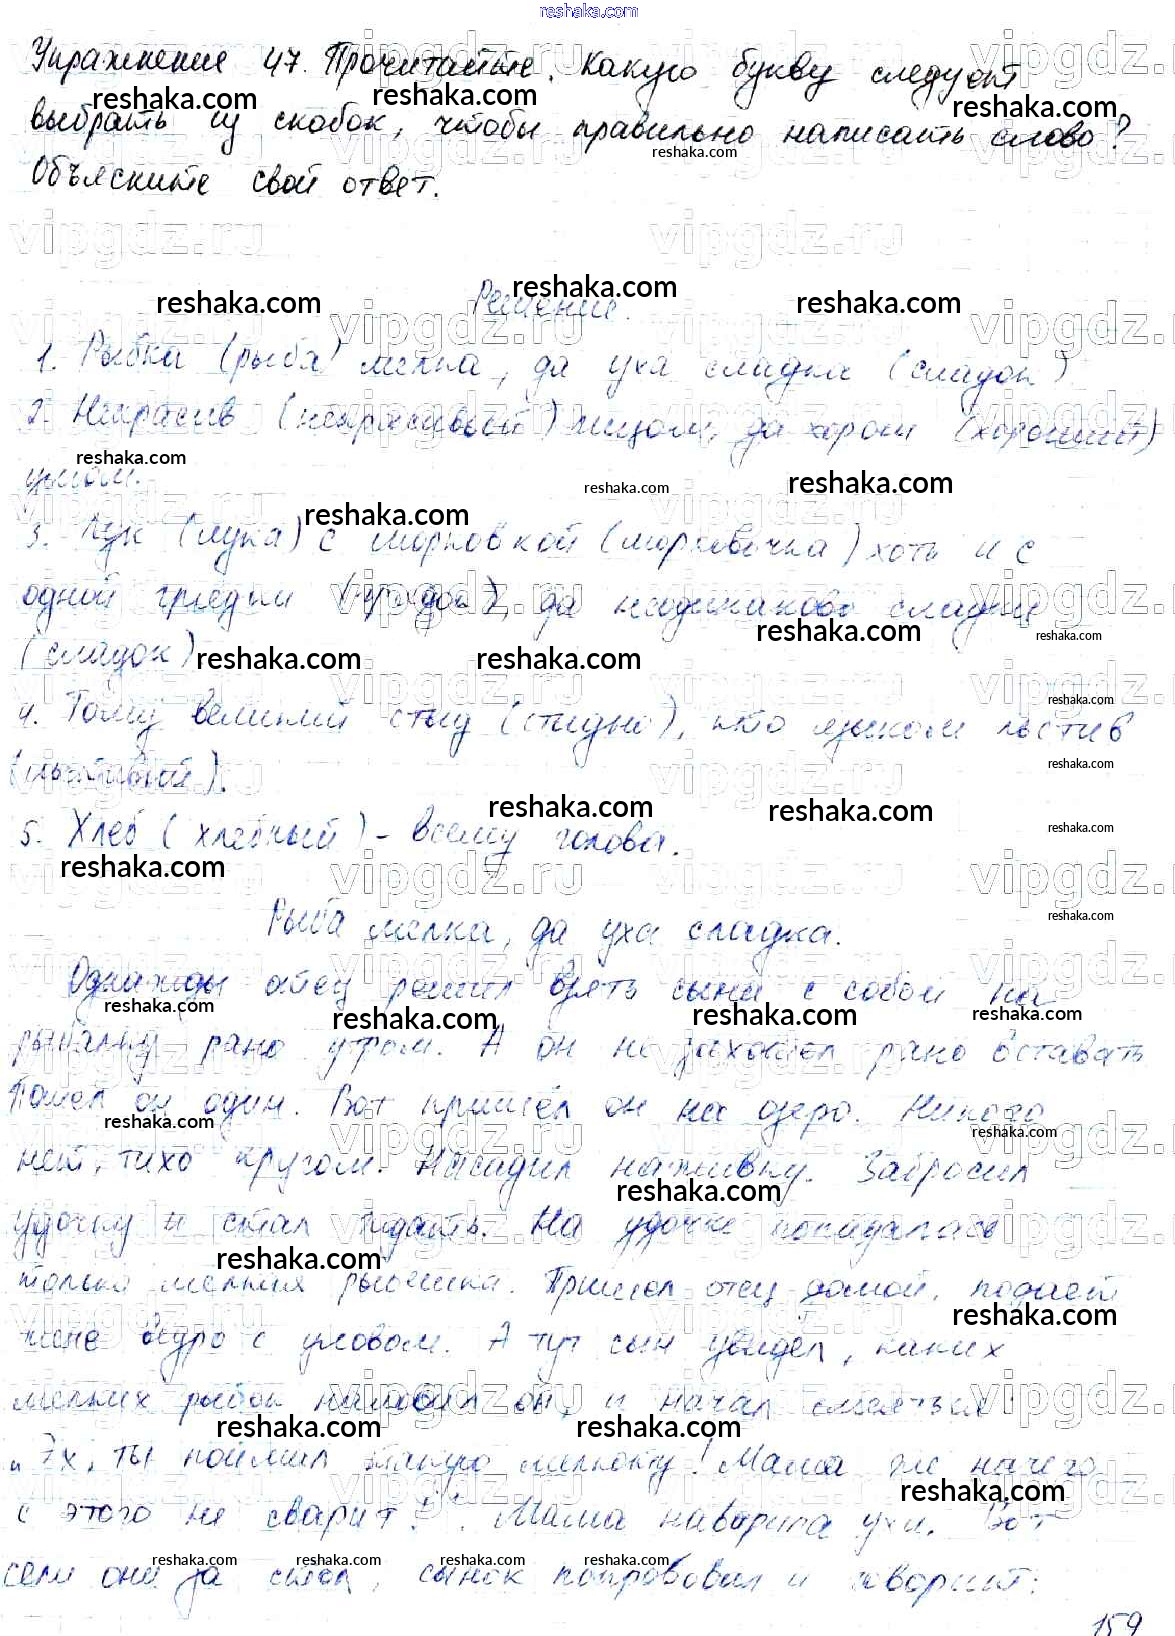 reshaka.com
Упражнение 47. Прочитайте. Какую букву следует
выбрать из скобок, чтобы правильно написать слово?
Объясните свой ответ.
Решение.
1. Рыбка (рыба) мелка, да уха сладка (сладок)
2. Некрасив (некрасивый) лицом, да хорош (хороший)
умом.
3. Лук (лука) с морковкой (морковочка) хоть и с
одной грядки (грядок), да неодинаково сладки
(сладок)
4. Тому великий стыд (стыдно), кто языком льстив
(льстивый).
5. Хлеб (хлебный) - всему голова.
Рыба мелка, да уха сладка.
Однажды отец решил взять сына с собой на
рыбалку рано утром. А он не захотел рано вставать
Пошел он один. Вот пришёл он на озеро. Никого
нет, тихо кругом. Насадил наживку. Забросил
удочку и стал ждать. На удочку попадалась
только мелкая рыбешка. Пришел отец домой, подает
жене ведро с уловом. А тут сын увидел, каких
мелких рыбок наловил он, и начал смеяться:
"Эх, ты поймал такую мелкоту! Мама же ничего
с этого не сварит!". Мама наварила ухи. Вот
сели они за стол, сынок попробовал и говорит:
159